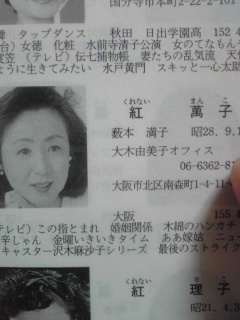 国分寺市本町2-22-2-101
舞 タップダンス 秋田 日出学園高 152 4
台）女徳 化粧 水前寺清子公演 女のてなもん
度笠（テレビ）伝七捕物帳 妻たちの乱気流 天
ように生きてみたい 水戸黄門 スキッと一心太助
くれない まんこ
紅 萬子
薮本 満子 昭28.9.1
大木由美子オフィス
06-6362-8
大阪市北区南森町1-4-11-
大阪 155 4
テレビ）この指とまれ 婚姻関係 木綿のハンカチ
辛しゃん 金曜いきいきタイム ああ嫁姑 ニュ
キャスター沢木麻沙子シリーズ 最後のストライク
くれない りこ
紅 理子
昭21.4.3